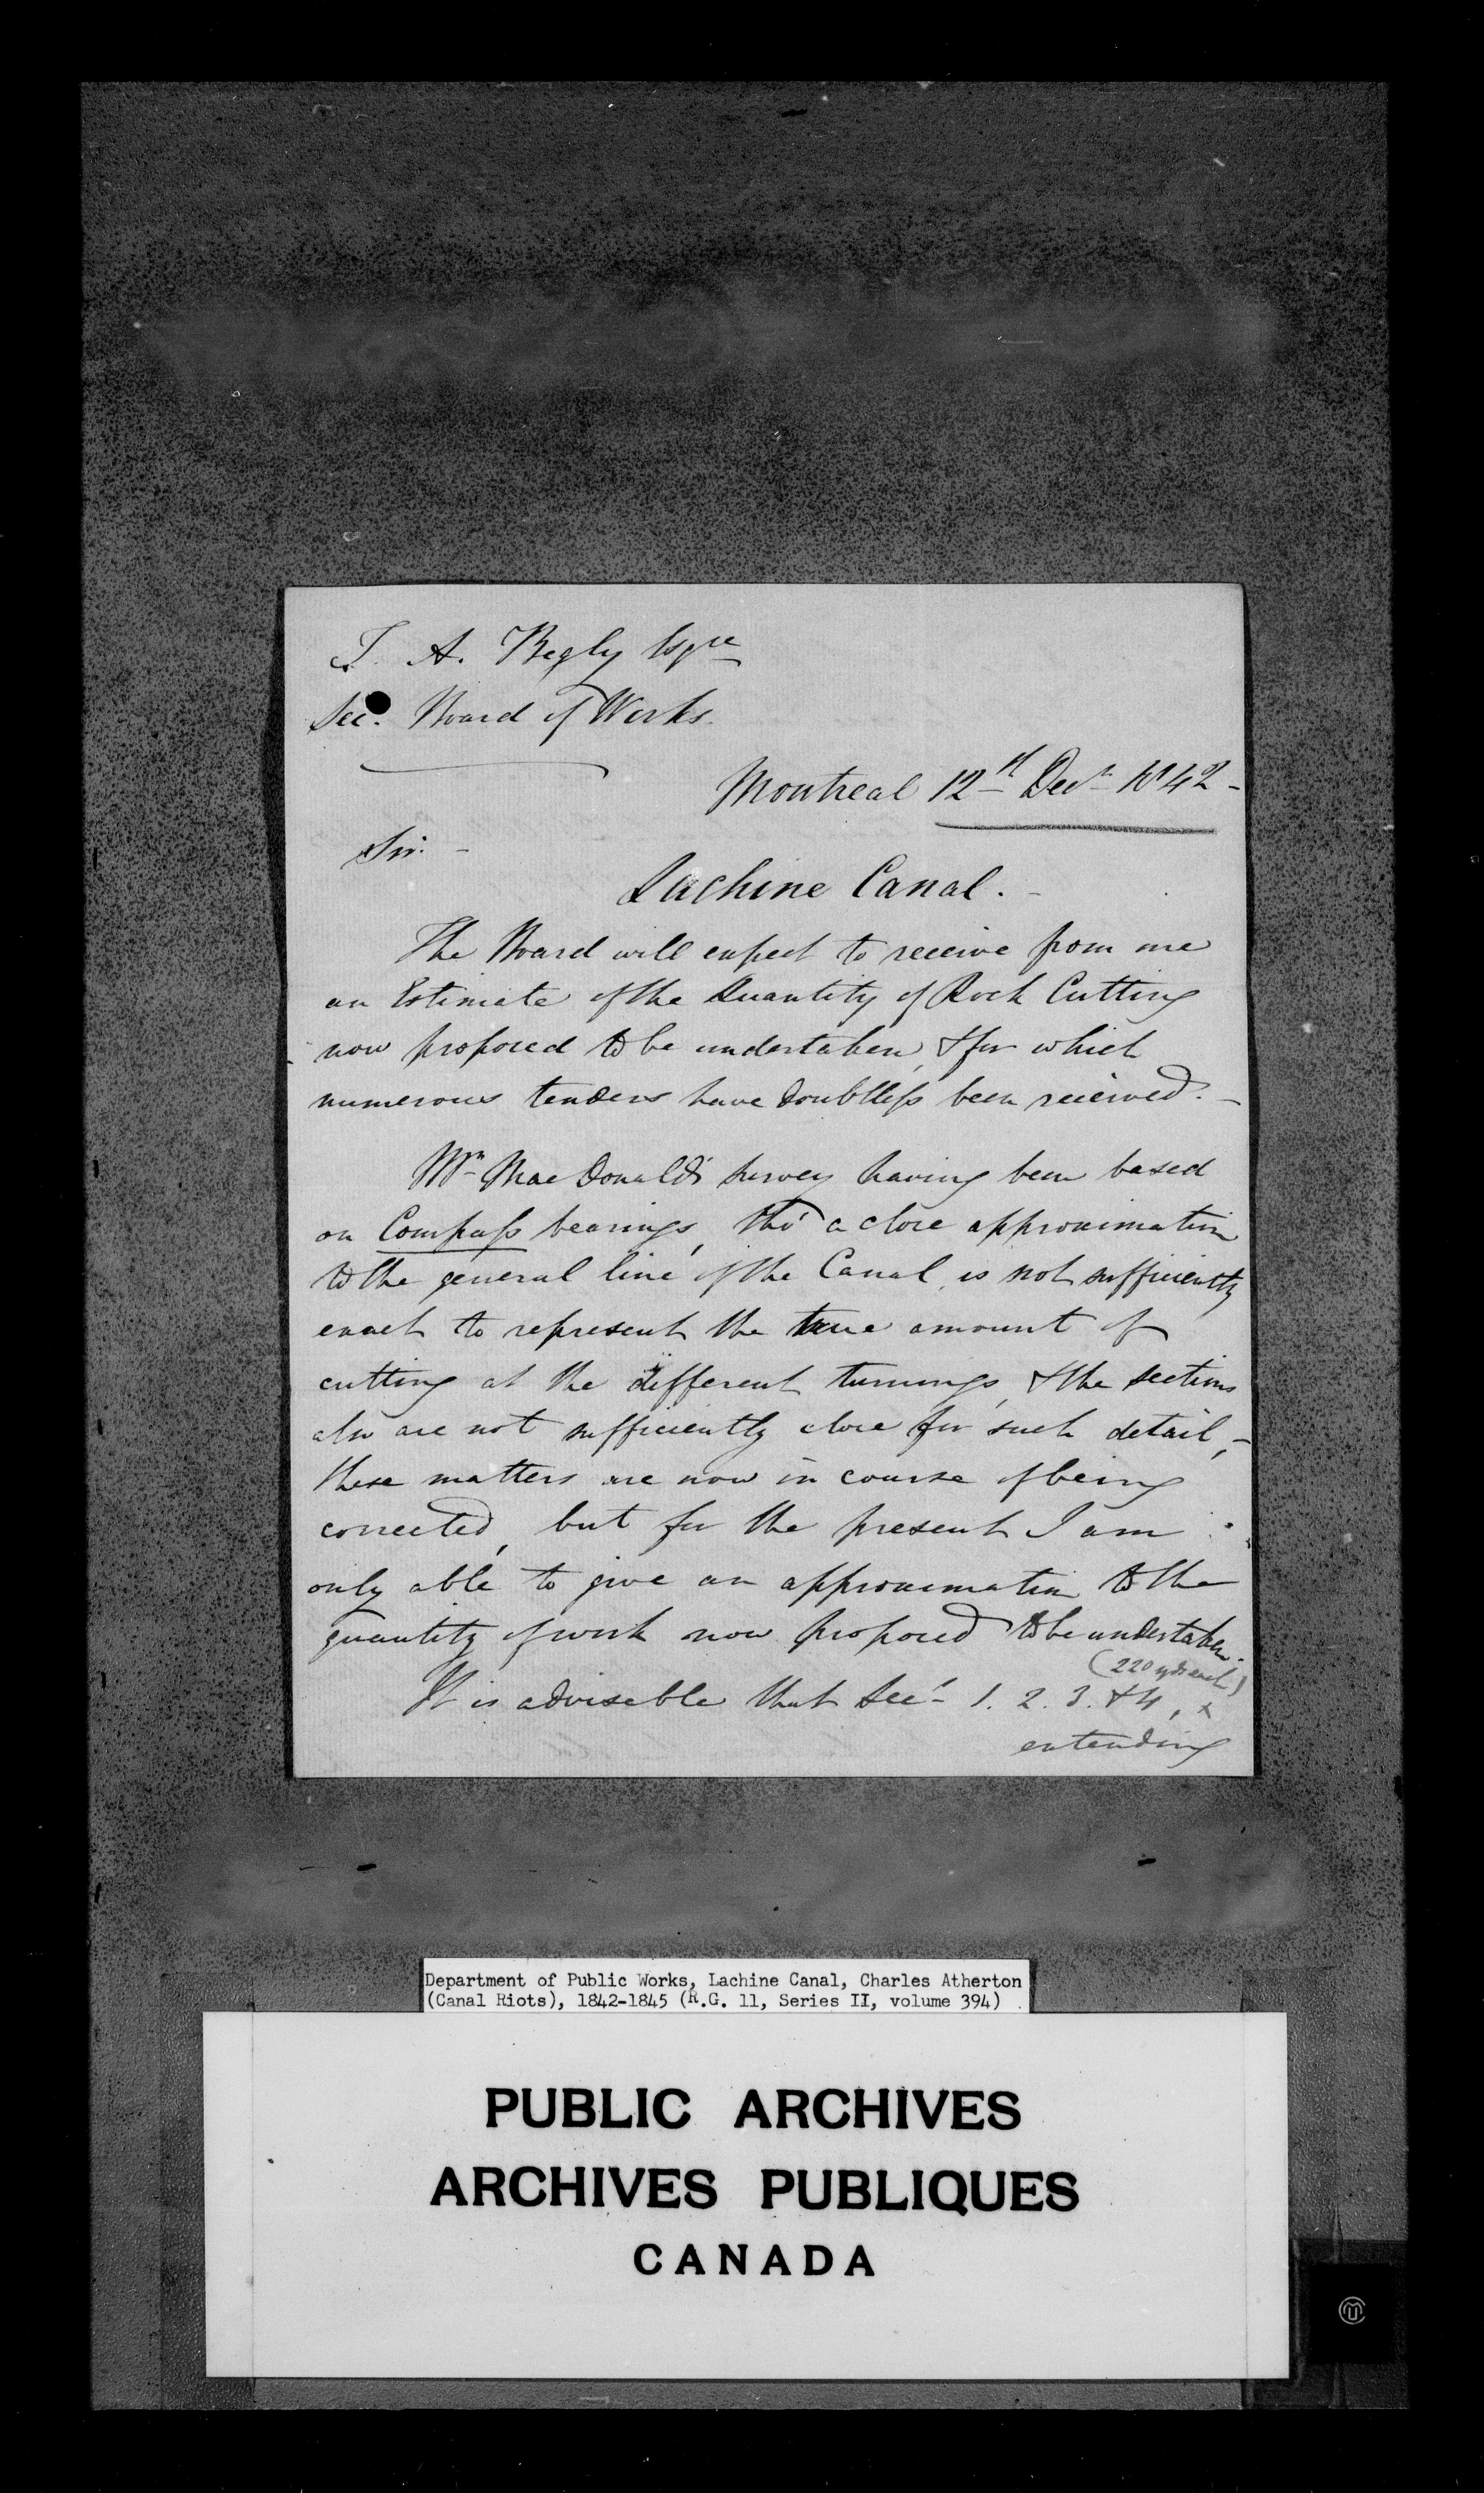 T. A. Begly Esqre
Sec. Board of Works.
Montreal 12th Decr 1842 -
Sir. -
Lachine Canal. -
The Board will expect to receive from me
an Estimate of the Quantity of Rock Cutting
now proposed to be undertaken, & for which
numerous tenders have doubtless been received. -
Mr. MacDonald's survey having been based
on Compass bearings, tho' a close approximation
to the general line of the Canal, is not sufficiently
exact to represent the true amount of
cutting at the different turnings, & the sections
also are not sufficiently close for such detail, -
these matters are now in course of being
corrected, but for the present I am
only able to give an approximation to the
quantity of work now proposed to be undertaken.
(220 yds each)
It is adviseable that Secs 1. 2. 3. & 4, x
extending
Department of Public Works, Lachine Canal, Charles Atherton
(Canal Riots), 1842-1845 (R.G. 11, Series II, volume 394)
PUBLIC ARCHIVES
ARCHIVES PUBLIQUES
CANADA